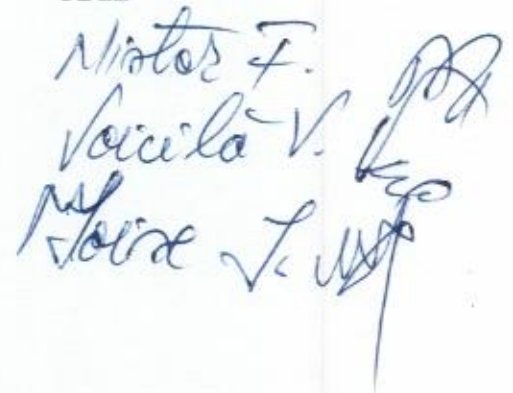 Nistor F.
Voicilă V.
Moise I.